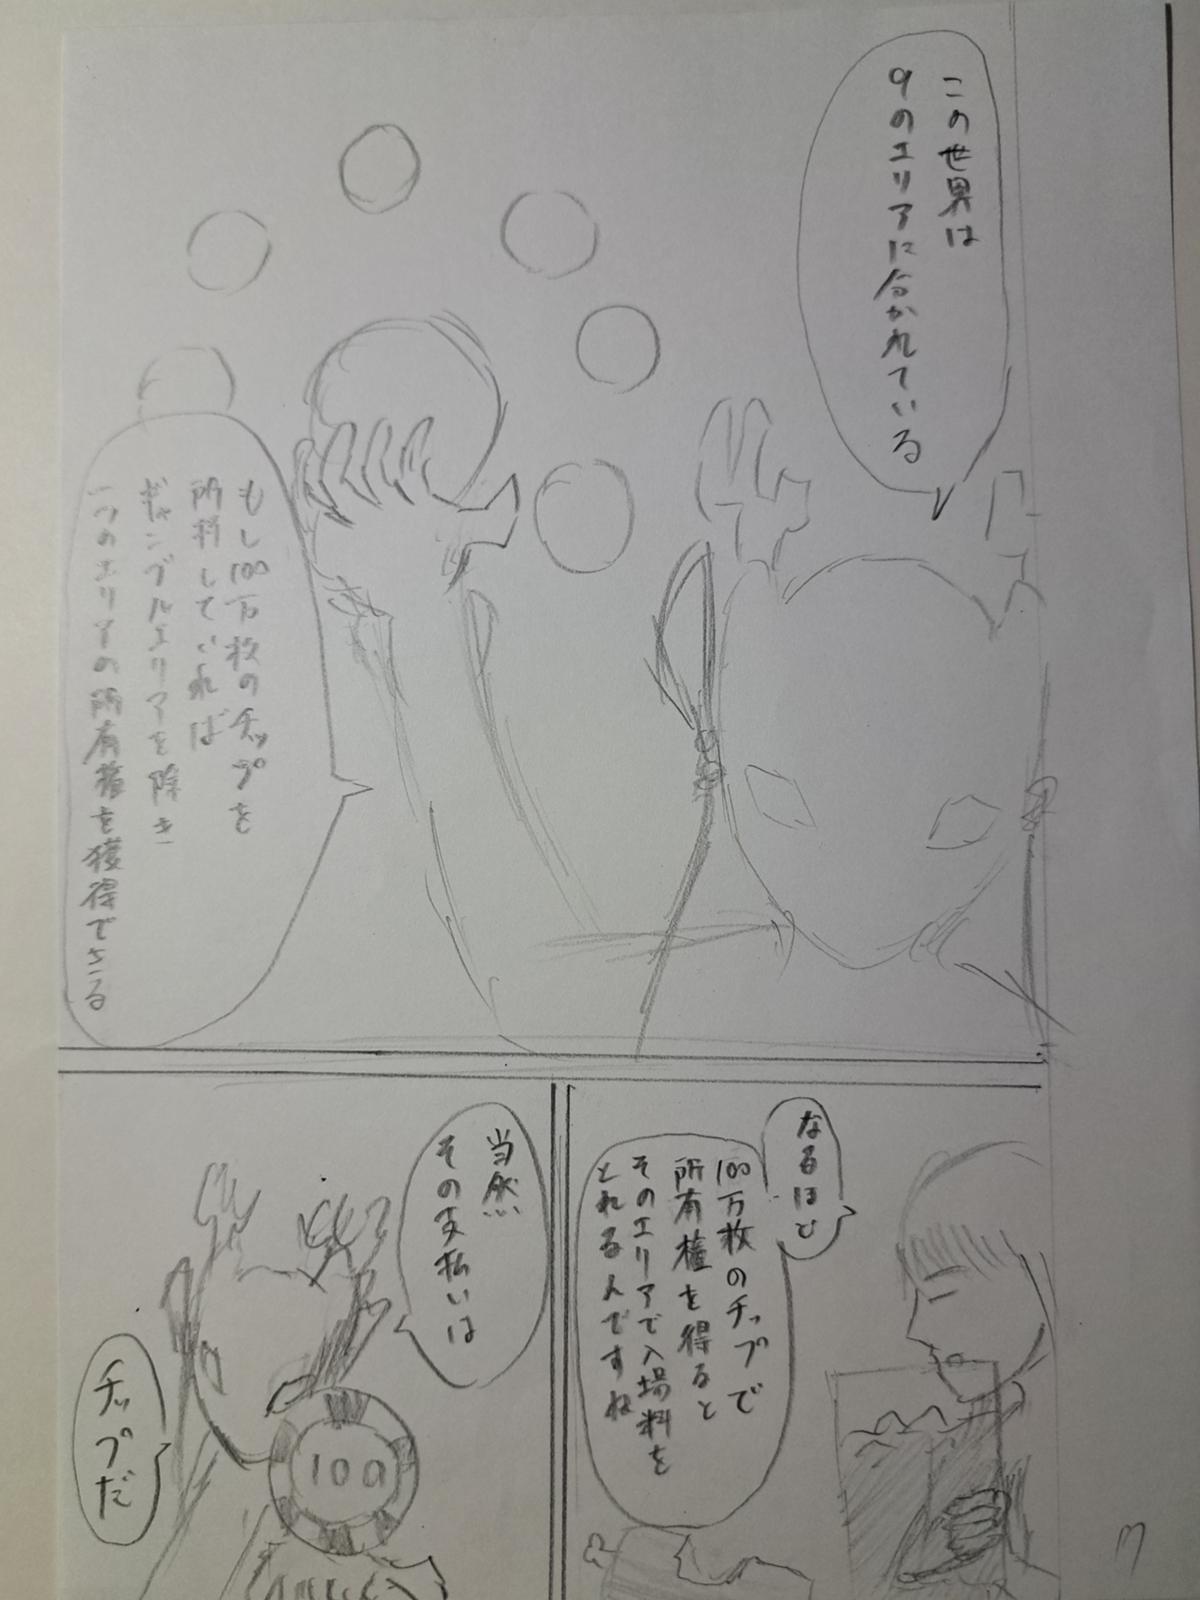 この世界は
9のエリアに分かれている
もし100万枚のチップを
所持していれば
ギャンブルエリアを除き
一つのエリアの所有権を獲得できる
なるほど
100万枚のチップで
所有権を得ると
そのエリアで入場料を
とれるんですね
当然
その支払いは
チップだ
100